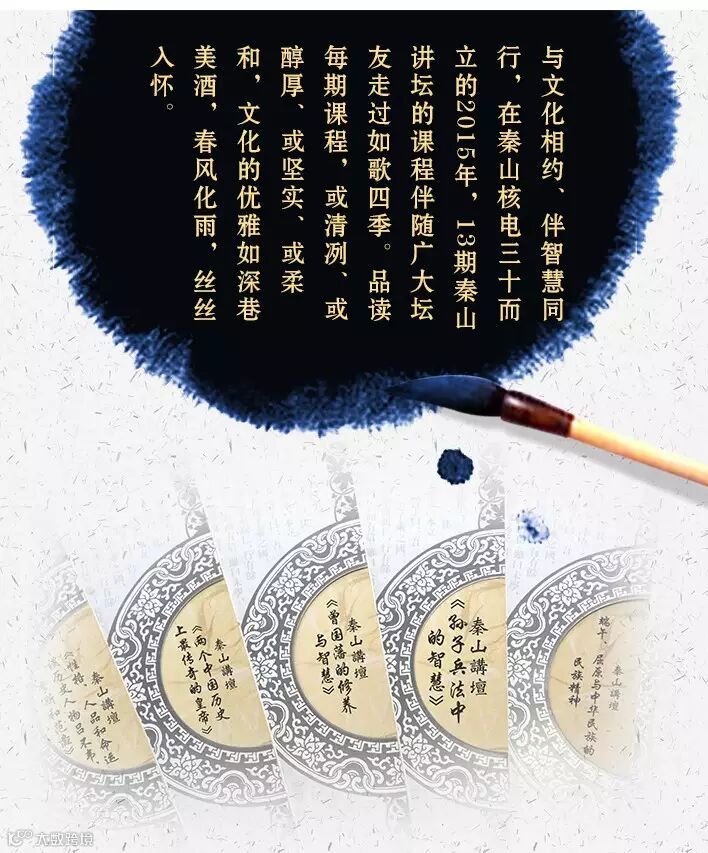 与文化相约、伴智慧同
行，在秦山核电三十而
立的2015年，13期秦山
讲坛的课程伴随广大坛
友走过如歌四季。品读
每期课程，或清冽、或
醇厚、或坚实、或柔
和，文化的优雅如深巷
美酒，春风化雨，丝丝
入怀。
秦山講壇
端午、屈原与中华民族的
民族精神
秦山講壇
《孙子兵法中
的智慧》
秦山講壇
《曾国藩的修养
与智慧》
秦山講壇
《两个中国历史
上最传奇的皇帝》
秦山講壇
《性格、人品和命运
历史人物吕不韦、
大数跨境